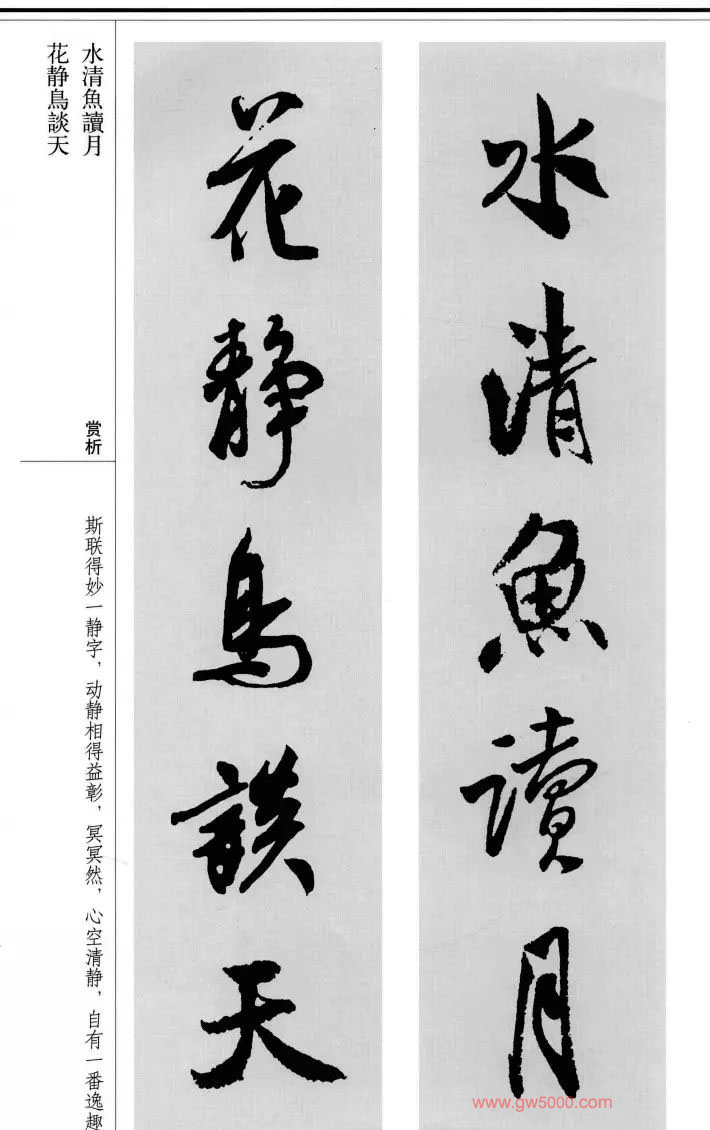 水清魚讀月
花静鳥談天
水清魚讀月
花静鳥談天
赏析
斯联得妙一静字，动静相得益彰，冥冥然，心空清静，自有一番逸趣
www.gw5000.com